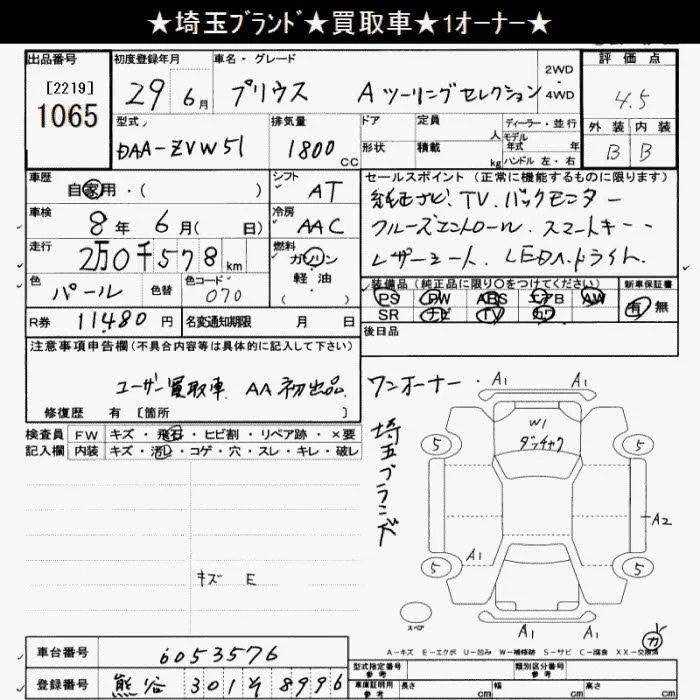 ★埼玉ブランド★買取車★1オーナー★
出品番号
[2219]
1065
初度登録年月
29年 6月
車名・グレード
プリウス Aツーリングセレクション
2WD
・
4WD
評価点
4.5
外装 内装
B B
型式
DAA-ZVW51
排気量
1800 CC
ドア
形状
定員 人
積載 kg
ディーラー・並行
モデル
年式 年
ハンドル 左・右
車歴
自家用・( )
シフト
AT
車検
8年 6月( 日)
冷房
AAC
走行
2万0千578km
燃料
ガソリン
軽油
( )
色
パール
色替
色コード
070
R券
11480円
名変通知期限 月 日
セールスポイント (正常に機能するものに限ります)
純正ナビ、TV、バックモニター
クルーズコントロール、スマートキー
レザーシート、LEDヘッドライト、
装備品 (純正品に限り〇をつけてください)
PS PW ABS エアB AW
SR ナビ TV カワ
新車保証書
有 無
後日品
注意事項申告欄(不具合内容等は具体的に記入して下さい)
ユーザー買取車 AA初出品
修復歴 有 [箇所 ]
検査員
記入欄
FW キズ・飛石・ヒビ割・リペア跡・×要
内装 キズ・汚レ・コゲ・穴・スレ・キレ・破レ
キズ E
ワンオーナー
埼玉ブランド
A1 A1
W1
ダッチャク
5 5
A2
A1
5 5
スペア
A1 A1
カ
A-キズ E-エクボ U-凹み W-補修跡 S-サビ C-腐食 XX-交換済
車台番号
6053576
登録番号
熊谷 301 8996
型式指定番号
参考
類別区分番号
参考
車庫証明用
参考
長さ cm
幅 cm
高さ cm